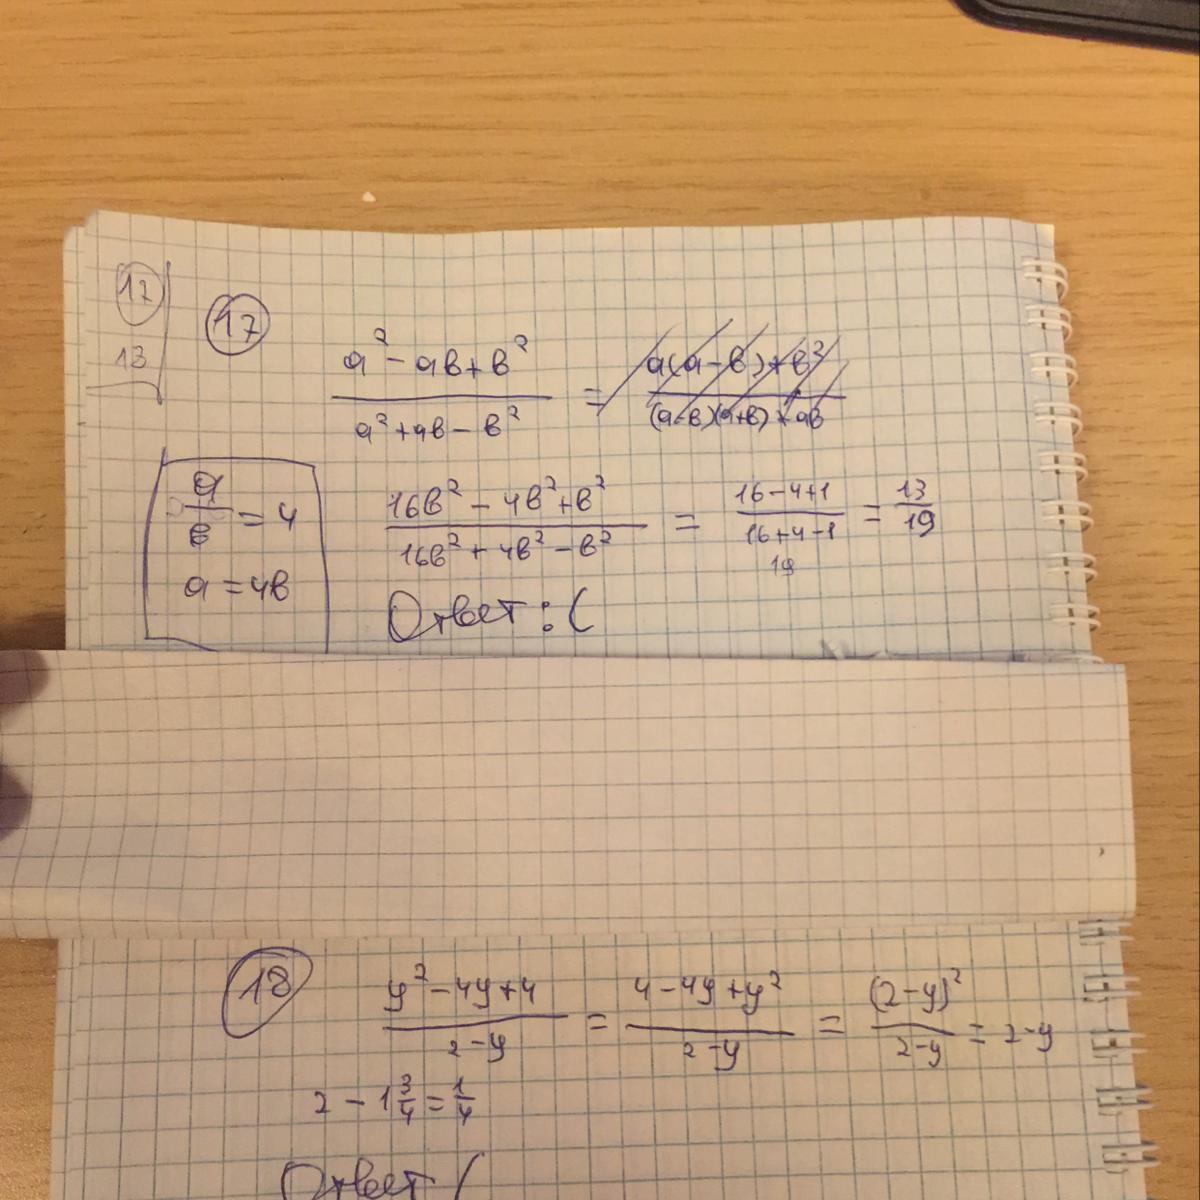 17
13
17
a² - aв + в² / a² + aв - в² = a(a - в) + в² / (a-в)(a+в) + aв
a/в = 4
a = 4в
16в² - 4в² + в² / 16в² + 4в² - в² = 16 - 4 + 1 / 16 + 4 - 1 = 13/19
19
Ответ: (
18
y² - 4y + 4 / 2 - y = 4 - 4y + y² / 2 - y = (2 - y)² / 2 - y = 2 - y
2 - 1 3/4 = 1/4
Ответ (